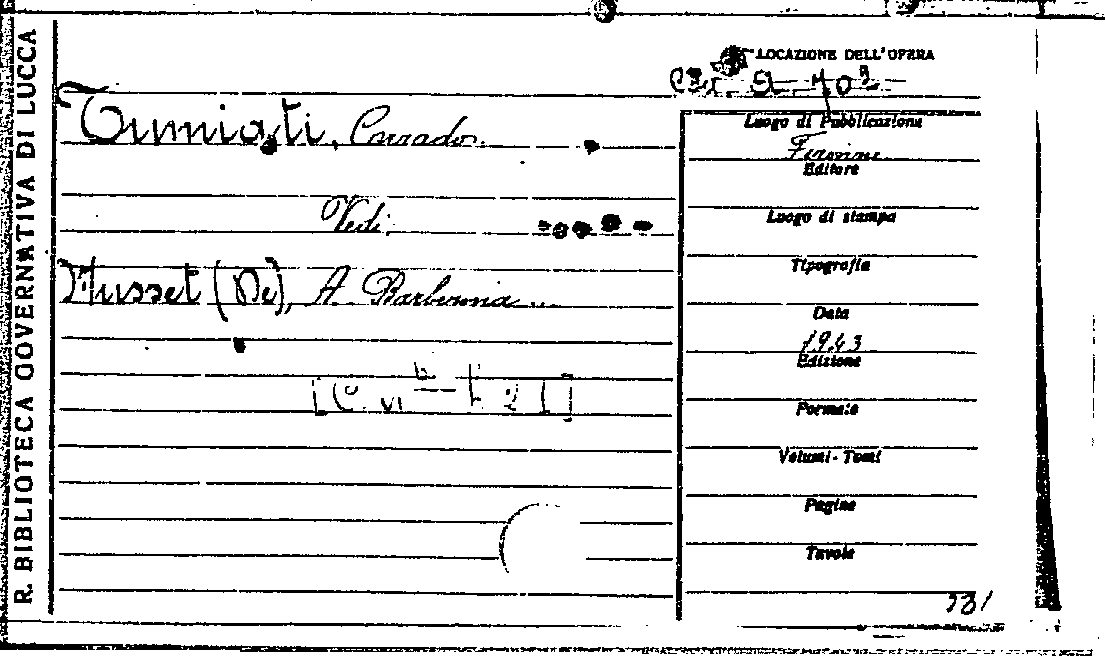 R. BIBLIOTECA GOVERNATIVA DI LUCCA
LOCAZIONE DELL'OPERA
Tumiati, Corrado.
Vedi:
Musset (De), A. Barberina...
Luogo di Pubblicazione
Firenze
Editore
Luogo di stampa
Tipografia
Data
1943
Edizione
Formato
Volumi - Tomi
Pagine
Tavole